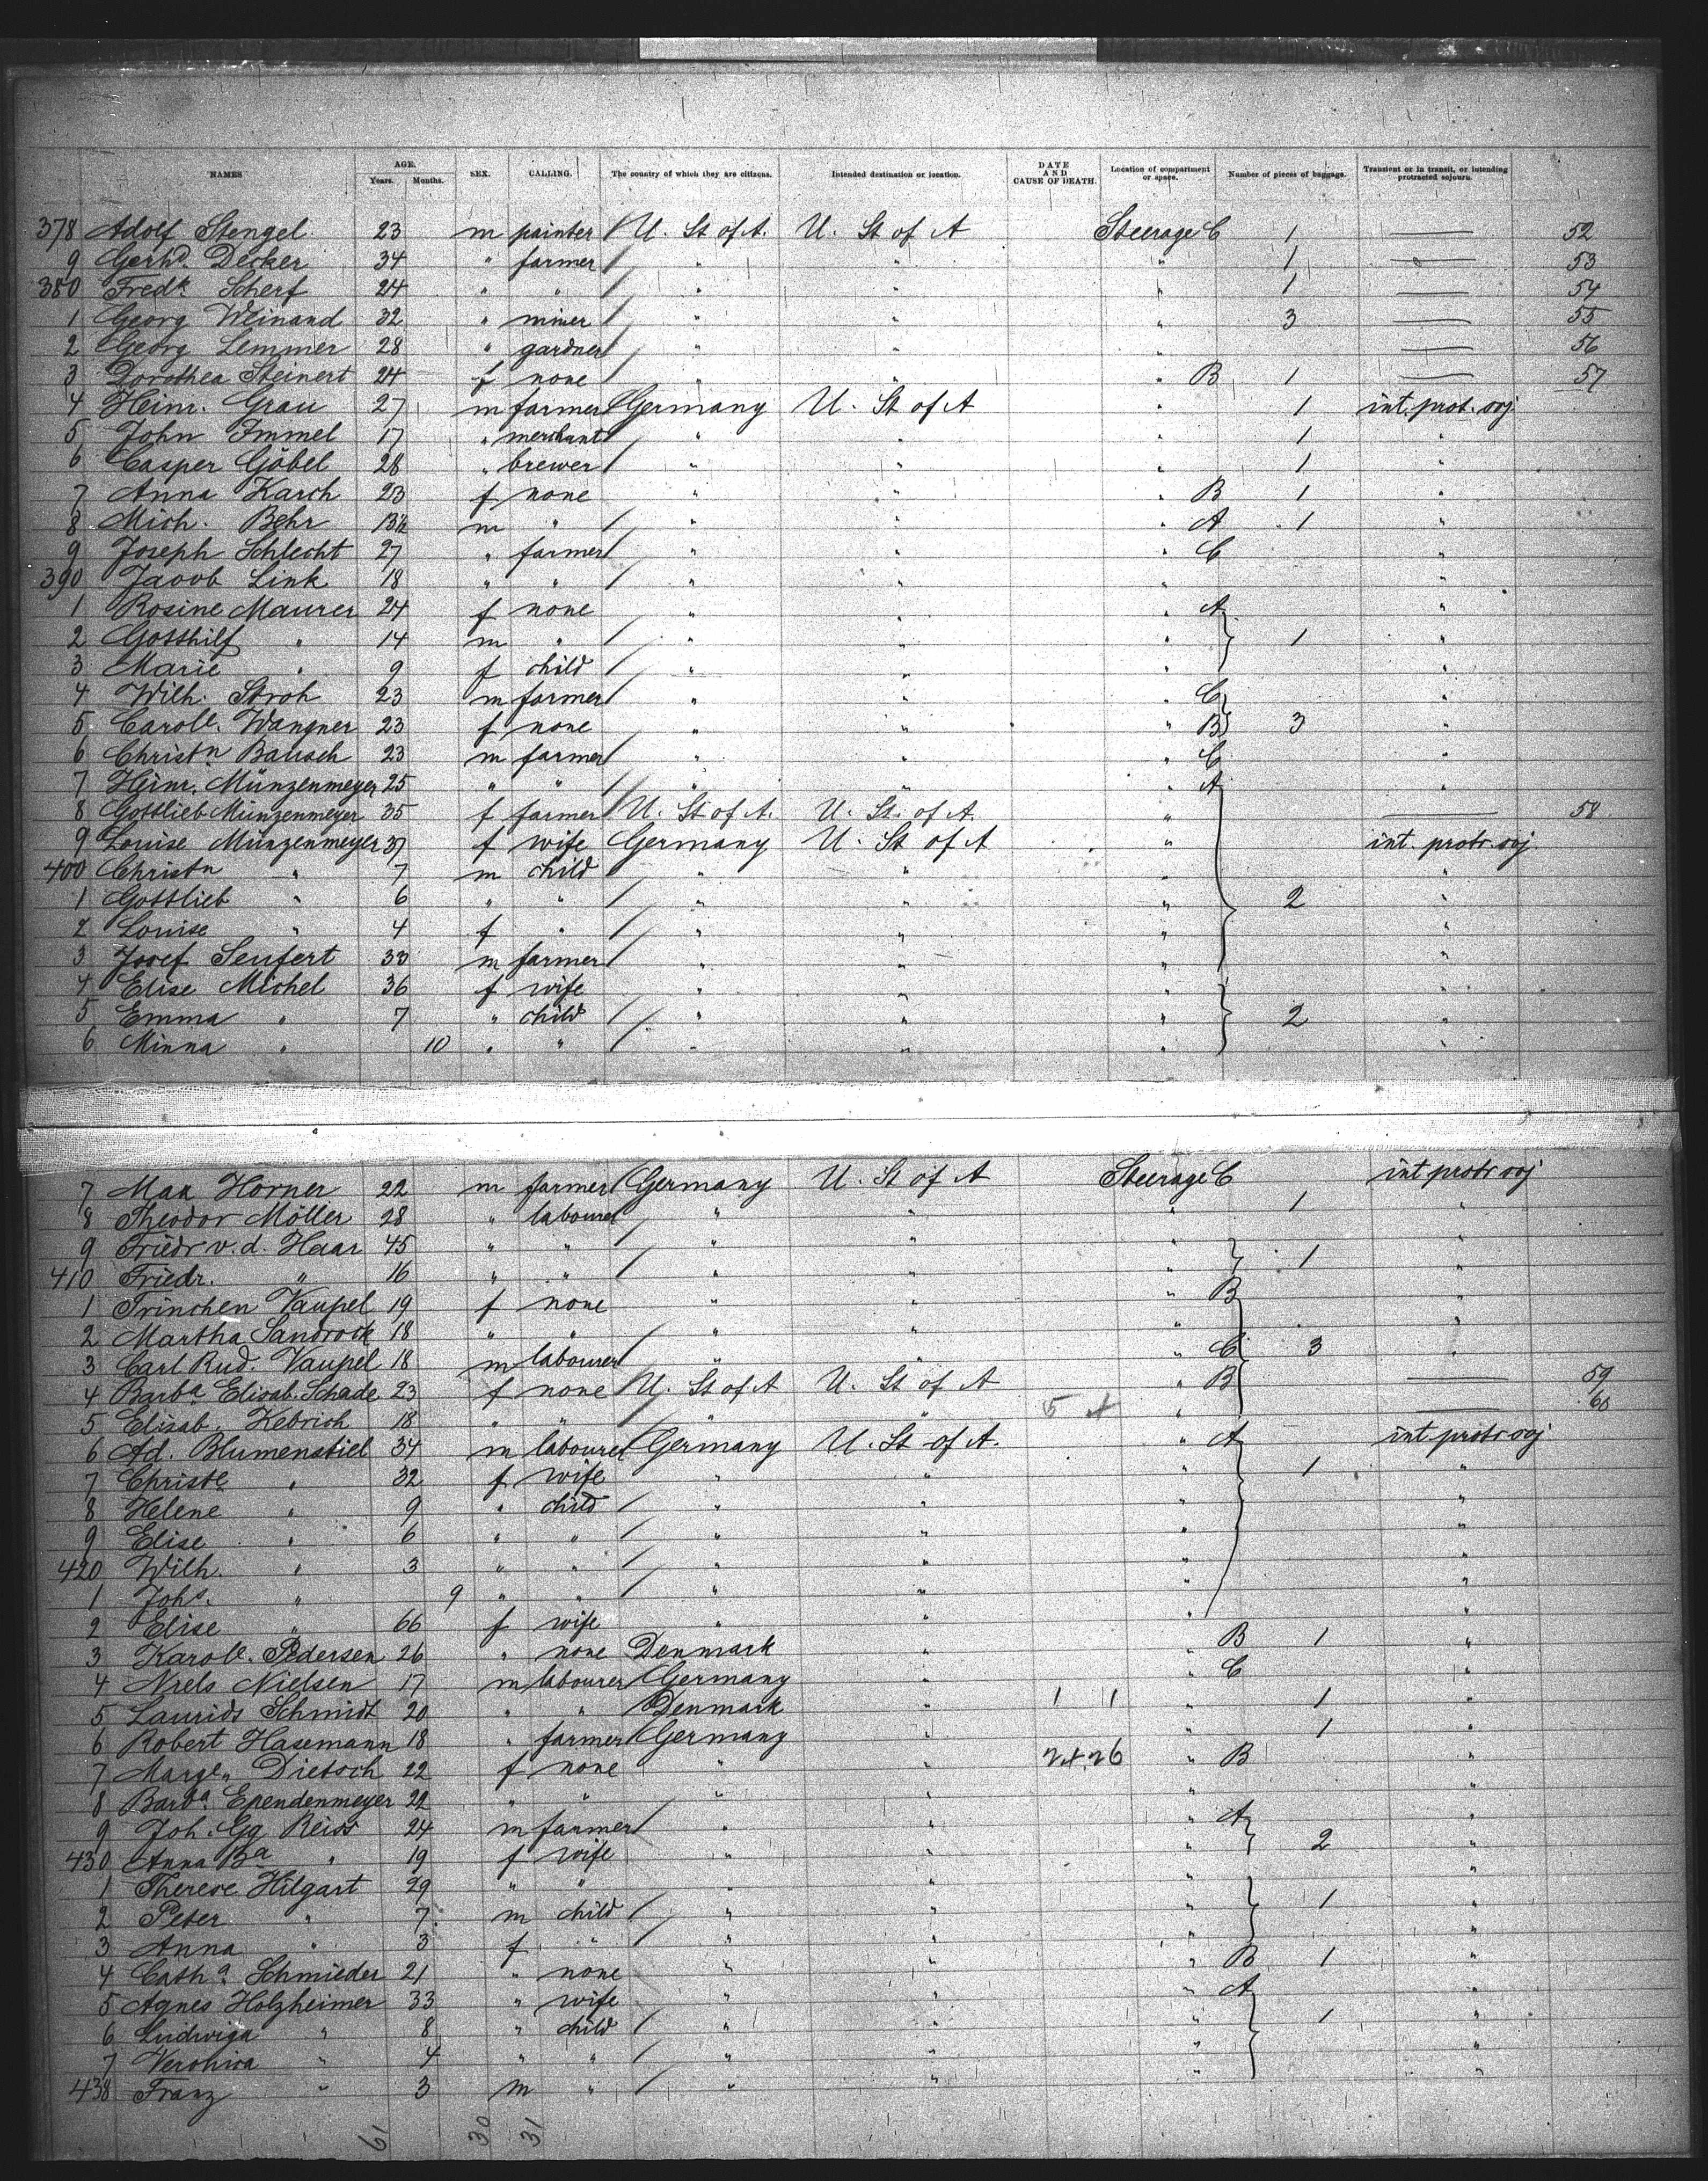 NAMES AGE. Years. Months. SEX. CALLING. The country of which they are citizens. Intended destination or location. DATE AND CAUSE OF DEATH. Location of compartment or space. Number of pieces of baggage. Transient or in transit, or intending protracted sojourn.
378 Adolf Stengel 23 m painter U. St of A. U. St of A Steerage C 1 — 52
9 Gerhd. Decker 34 " farmer " " " 1 — 53
380 Fredk Scherf 24 " " " " " 1 — 54
1 Georg Weinand 32 " miner " " " 3 — 55
2 Georg Lemmer 28 " gardner " " " — 56
3 Dorothea Steinert 24 f none " " " B 1 — 57
4 Heinr. Grau 27 m farmer Germany U. St of A " 1 int. prot. soj
5 John Immel 17 " merchant " " " 1 "
6 Casper Göbel 28 " brewer " " " 1 "
7 Anna Karch 23 f none " " " B 1 "
8 Mich. Behr 13½ m " " " " A 1 "
9 Joseph Schlecht 27 " farmer " " " C "
390 Jacob Link 18 " " " " " "
1 Rosine Maurer 24 f none " " " A "
2 Gotthilf " 14 m " " " " 1 "
3 Marie " 9 f child " " " "
4 Wilh. Stroh 23 m farmer " " " C "
5 Carole. Wangner 23 f none " " " B 3 "
6 Christn Bausch 23 m farmer " " " C "
7 Heinr. Münzenmeyer 25 " " " " " A "
8 Gottlieb Münzenmeyer 35 f farmer U. St of A. U. St. of A. " — 58
9 Louise Münzenmeyer 37 f wife Germany U. St of A " int. protr. soj
400 Christn " 7 m child " " " "
1 Gottlieb " 6 " " " " " 2 "
2 Louise " 4 f " " " " "
3 Josef Seufert 33 m farmer " " " "
4 Elise Michel 36 f wife " " " "
5 Emma " 7 " child " " " 2 "
6 Minna " 10 " " " " " "
7 Max Horner 22 m farmer Germany U. St of A Steerage C int protr soj
8 Theodor Möller 28 " labourer " " " 1 "
9 Friedr v. d. Haar 45 " " " " " "
410 Friedr. " 16 " " " " " 1 "
1 Trinchen Vaupel 19 f none " " " B "
2 Martha Sandrock 18 " " " " " "
3 Carl Rud. Vaupel 18 m labourer " " " C 3 "
4 Barba Elisab. Schade 23 f none U. St of A U. St of A " B — 59
5 Elisab. Kebrich 18 " " " " " — 60
6 Ad. Blumenstiel 34 m labourer Germany U. St of A. " A int. protr soj
7 Christe " 32 f wife " " " 1 "
8 Helene " 9 " child " " " "
9 Elise " 6 " " " " " "
420 Wilh. " 3 " " " " " "
1 Johs. " 9 " " " " " "
2 Elise " 66 f wife " " " "
3 Karole. Pedersen 26 " none Denmark " " B 1 "
4 Niels Nielsen 17 m labourer Germany " " C "
5 Laurids Schmidt 20 " " Denmark " 1 1 " 1 "
6 Robert Hasemann 18 " farmer Germany " " 1 "
7 Marge. Dietsch 22 f none " " " B "
8 Barba Ependenmeyer 22 " " " " " "
9 Joh. Gg Reiss 24 m farmer " " " A "
430 Anna Ba " 19 f wife " " " 2 "
1 Therese Hilgart 29 " " " " " "
2 Peter " 7 m child " " " 1 "
3 Anna " 3 f " " " " "
4 Catha Schmieder 21 " none " " " B 1 "
5 Agnes Holzheimer 33 " wife " " " A "
6 Ludwiga " 8 " child " " " 1 "
7 Veronica " 4 " " " " " "
438 Franz " 3 m " " " " "
61 30 31